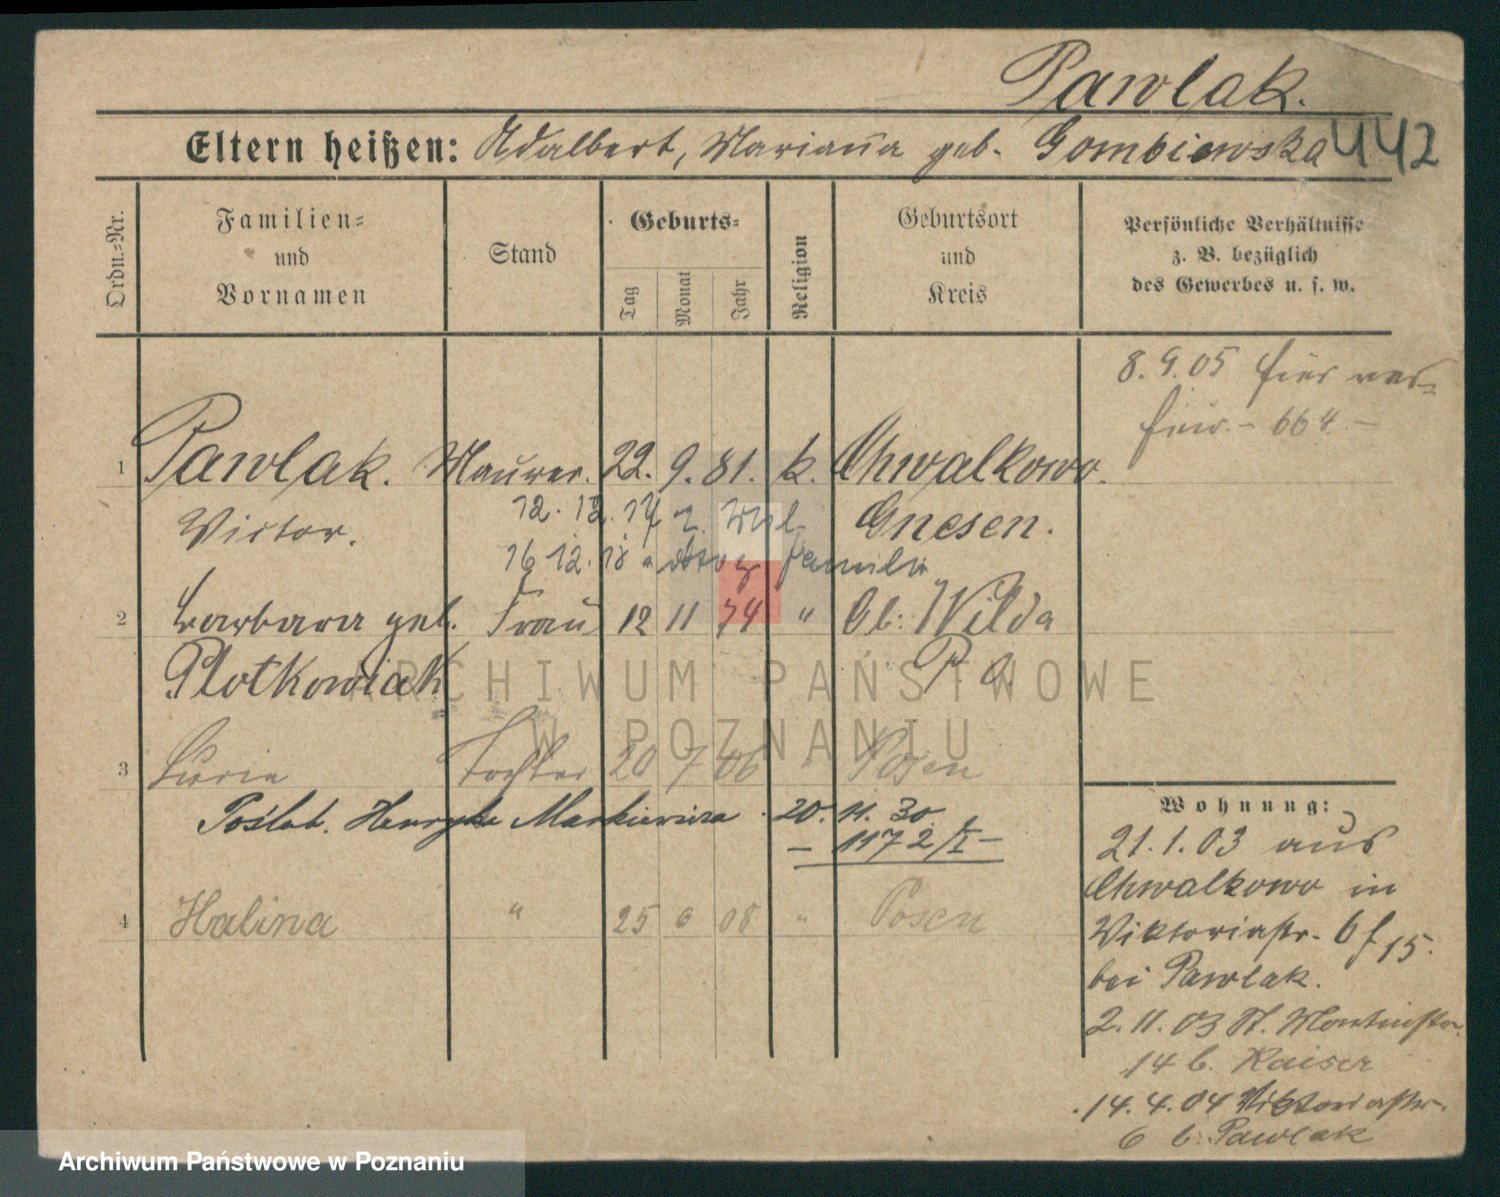 Pawlak.
Eltern heißen: Adalbert, Marianna geb. Gombiewska 442
Ordn.-Nr.
Familien-
und
Vornamen
Stand
Geburts-
Tag
Monat
Jahr
Religion
Geburtsort
und
Kreis
Persönliche Verhältnisse
z. B. bezüglich
des Gewerbes u. s. w.
8.9.05
1 Pawlak. Maurer. 22. 9. 81. k. Chwalkowo.
Victor. Gnesen.
12. 12. 17
16 12. 18 Familie
2 Barbara geb. Frau 12 11 74 " Ob: Wilda
Plotkowiak
3 Lucie Tochter 20 7 06 Posen
Poślub. Henryka Markiewicza 20. 11. 30.
– 1172/I –
4 Halina " 25 6 08 " Posen
Wohnung:
21.1.03 aus
Chwalkowo in
Viktoriastr. 6 f 15.
bei Pawlak.
2. 11. 03 St. Martinstr.
14 b. Kaiser
14. 4. 04 Viktoriastr.
6 b. Pawlak
ARCHIWUM PAŃSTWOWE
W POZNANIU
Archiwum Państwowe w Poznaniu